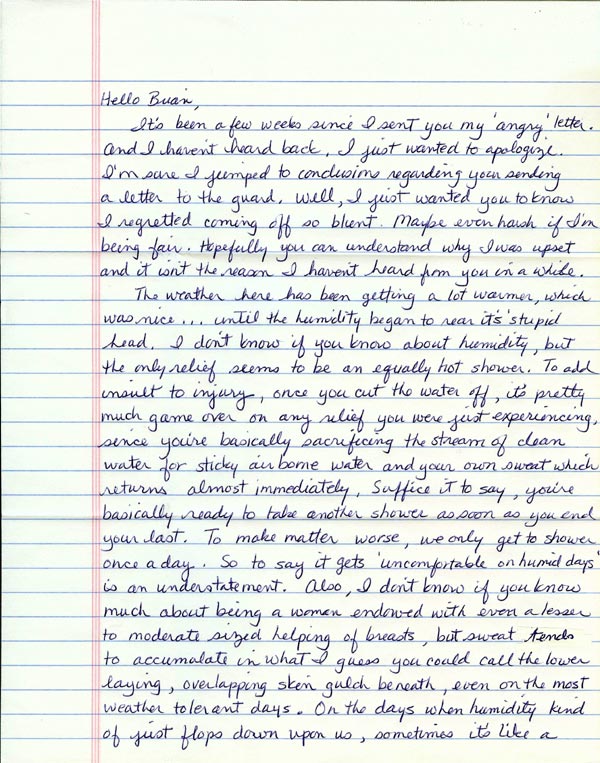 Hello Brian,
It's been a few weeks since I sent you my 'angry' letter.
and I haven't heard back. I just wanted to apologize.
I'm sure I jumped to conclusions regarding your sending
a letter to the guard. Well, I just wanted you to know
I regretted coming off so blunt. Maybe even harsh if I'm
being fair. Hopefully you can understand why I was upset
and it isn't the reason I haven't heard from you in a while.
The weather here has been getting a lot warmer, which
was nice... until the humidity began to rear it's 'stupid
head. I don't know if you know about humidity, but
the only relief seems to be an equally hot shower. To add
insult to injury, once you cut the water off, it's pretty
much game over on any relief you were just experiencing,
since you're basically sacrificing the stream of clean
water for sticky airborne water and your own sweat which
returns almost immediately. Suffice it to say, you're
basically ready to take another shower as soon as you end
your last. To make matter worse, we only get to shower
once a day. So to say it gets 'uncomfortable on humid days'
is an understatement. Also, I don't know if you know
much about being a woman endowed with even a lesser
to moderate sized helping of breasts, but sweat tends
to accumalate in what I guess you could call the lower
laying, overlapping skin gulch beneath, even on the most
weather tolerant days. On the days when humidity kind
of just flops down upon us, sometimes it's like a